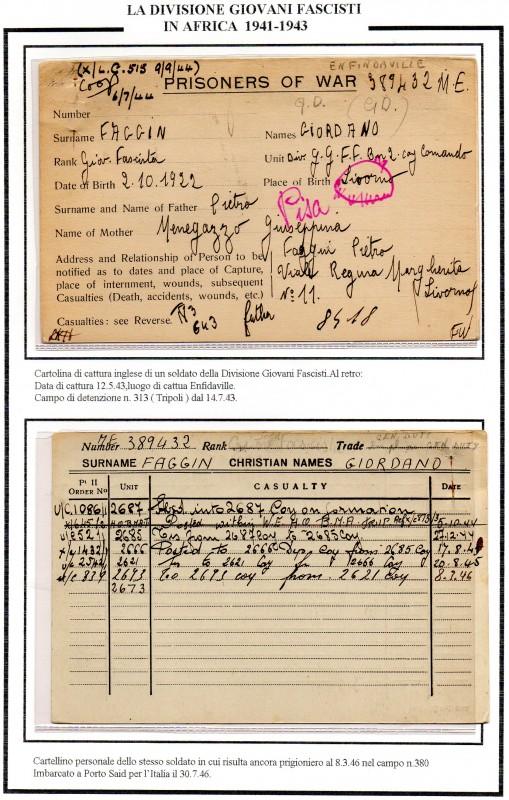 LA DIVISIONE GIOVANI FASCISTI
IN AFRICA 1941-1943
(X/L.G. 515 9/9/44)
ENFINDAVILLE
6/7/44
PRISONERS OF WAR 389432 M.E.
G.D. (G.D.)
Number
Surname FAGGIN
Names GIORDANO
Rank Giov. Fascista
Unit Div. G.G.F.F. Bn 2. coy Comando
Date of Birth 2.10.1922
Place of Birth Livorno
Pisa
Surname and Name of Father Pietro
Name of Mother Menegazzo Giuseppina
Address and Relationship of Person to be
notified as to dates and place of Capture,
place of internment, wounds, subsequent
Casualties (Death, accidents, wounds, etc.)
Faggin Pietro
Viale Regina Margherita
No 11. Livorno
Casualties: see Reverse.
father
8418
Cartolina di cattura inglese di un soldato della Divisione Giovani Fascisti.Al retro:
Data di cattura 12.5.43,luogo di cattua Enfidaville.
Campo di detenzione n. 313 ( Tripoli ) dal 14.7.43.
Number ME 389432 Rank Trade GEN DUTY
SURNAME FAGGIN CHRISTIAN NAMES GIORDANO
Pt II ORDER No UNIT CASUALTY DATE
U/C.1086 2687 into 2687 Coy on formation
Posted within M.E. 5.10.44
2685 Trs from 2687 Coy to 2685 Coy 27.12.44
2666 Posted to 2666 Coy from 2685 Coy 17.8.45
2621 Trs to 2621 Coy fr 2666 Coy 20.8.45
2673 to 2673 coy from 2621 Coy 8.3.46
2673
Cartellino personale dello stesso soldato in cui risulta ancora prigioniero al 8.3.46 nel campo n.380
Imbarcato a Porto Said per l'Italia il 30.7.46.